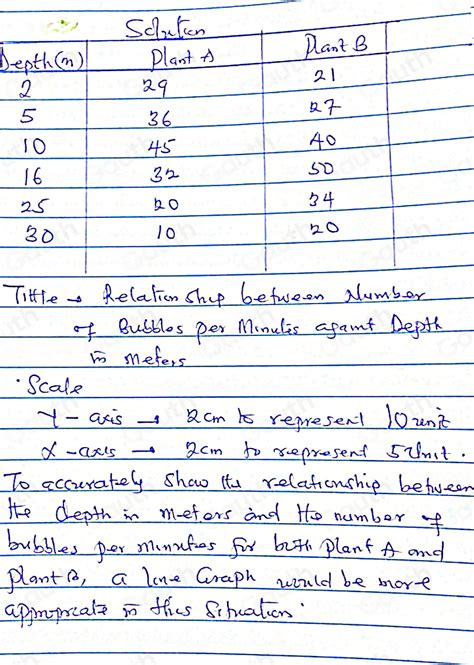 Solution
Depth(m) Plant A Plant B
2 29 21
5 36 27
10 45 40
16 32 50
25 20 34
30 10 20
Tittle → Relationship between Number
of Bubbles per Minutes against Depth
in meters
Scale
Y - axis → 2cm to represent 10 unit
X - axis → 2cm to represent 5 Unit.
To accurately show the relationship between
the depth in meters and the number of
bubbles per minutes for both Plant A and
Plant B, a line Graph would be more
appropriate in this Situation.